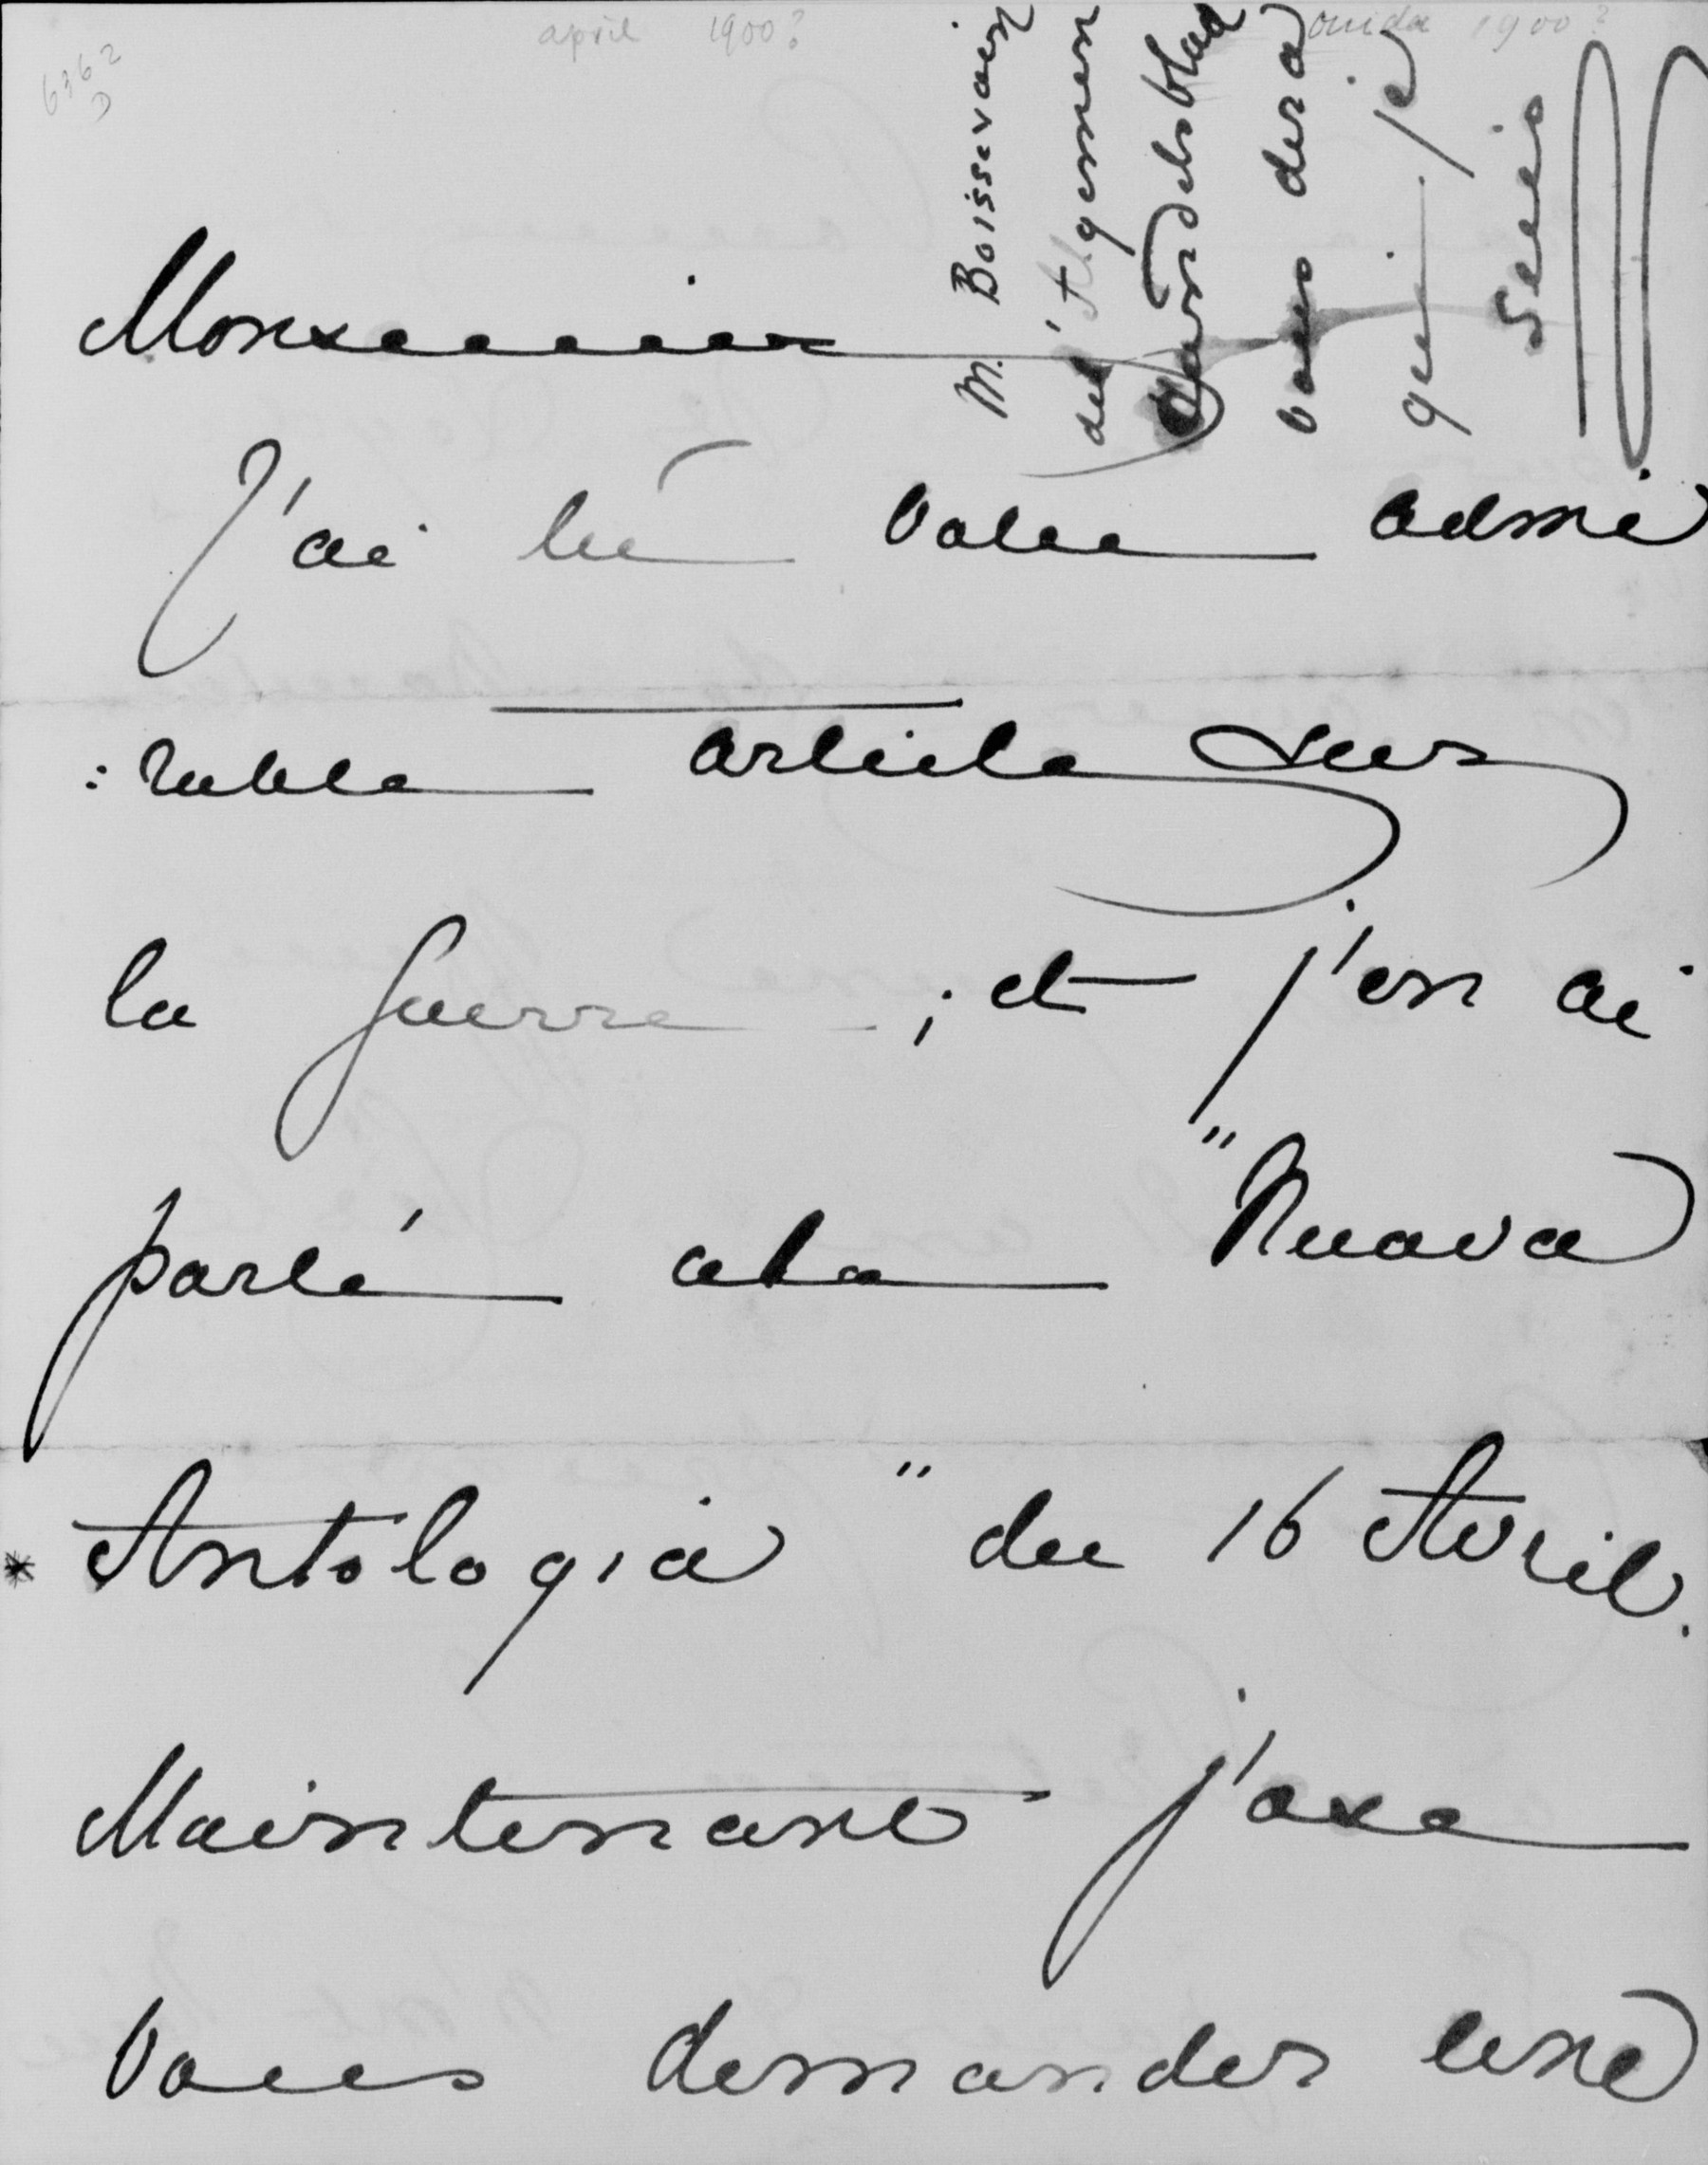 april 1900?
ouida 1900?
6362
D
M. Boissevain
del'Algemeen
Handelsblad
vous dira
qui je
suis
Monsieur
J'ai lu votre admi
:rable article sur
la guerre ; et j'en ai
parlé à la "Nuova
* Antologia" du 16 Avril.
Maintenant j'ose
vous demander une